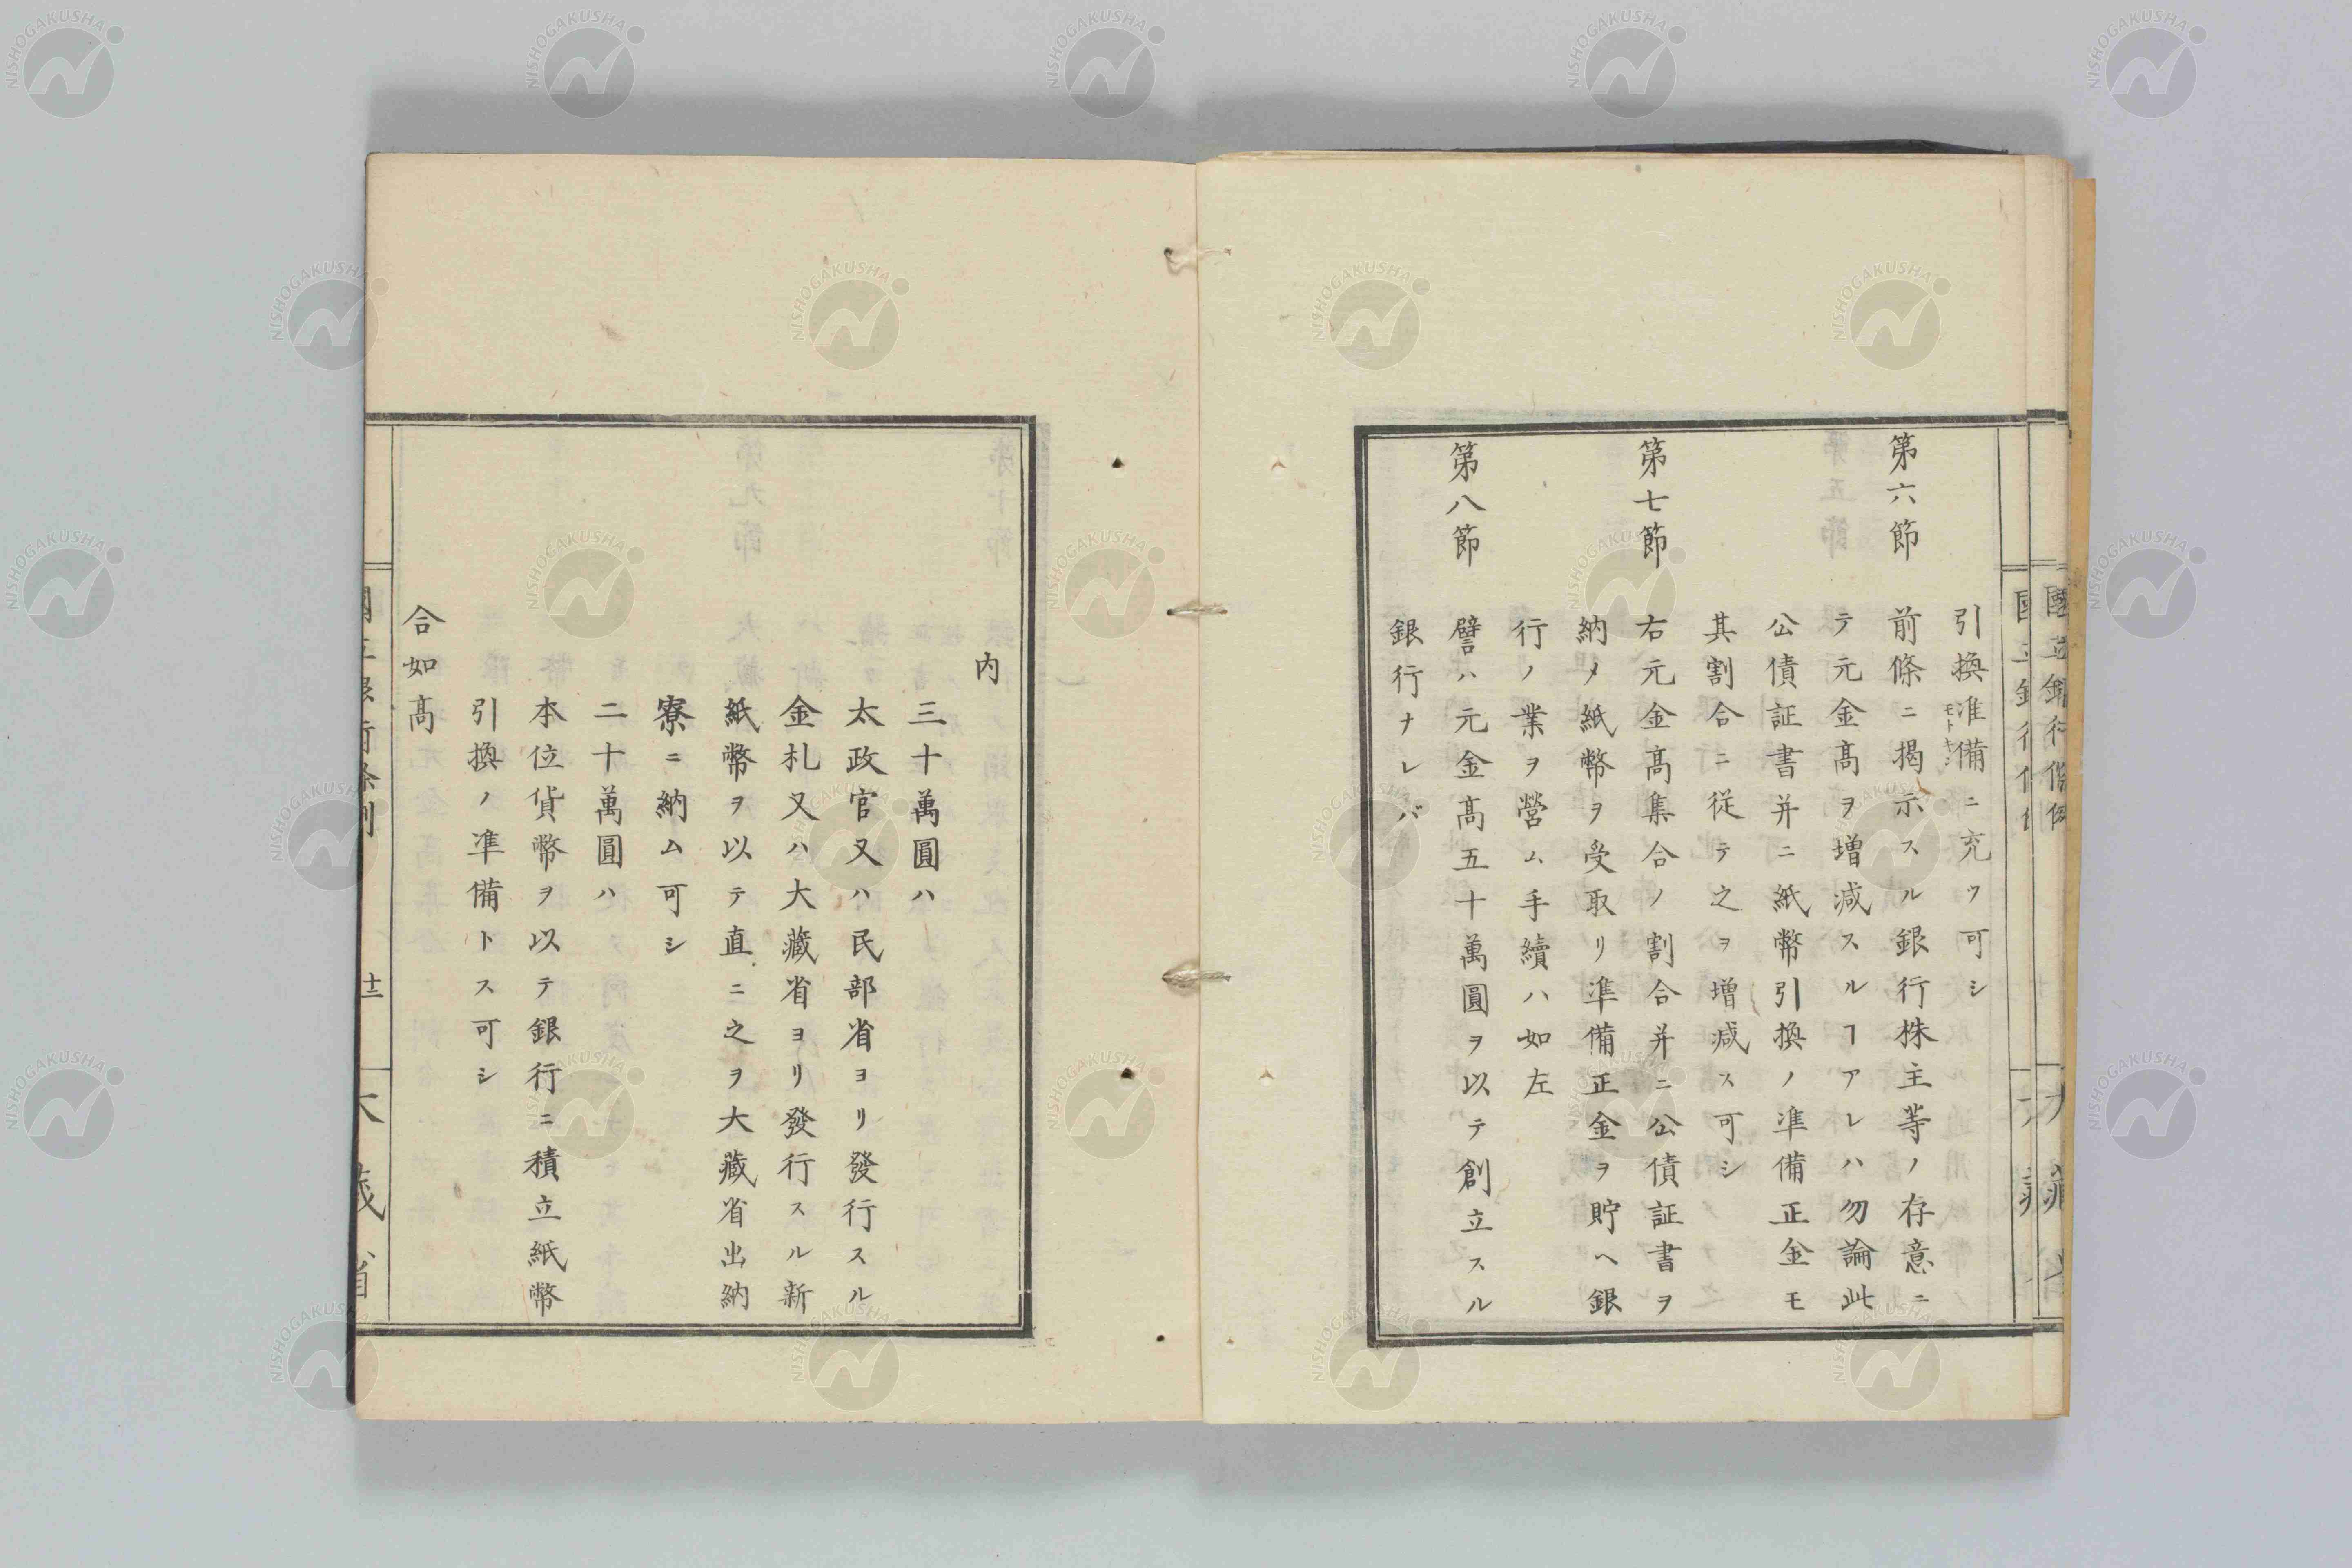 引換準備ニ充ツ可シ
モトキン
第六節 前條ニ掲示スル銀行株主等ノ存意ニ
テ元金髙ヲ増減スルヿアレハ勿論此
公債証書并ニ紙幣引換ノ準備正金モ
其割合ニ従テ之ヲ増減ス可シ
第七節 右元金髙集合ノ割合并ニ公債証書ヲ
納メ紙幣ヲ受取リ準備正金ヲ貯ヘ銀
行ノ業ヲ營ム手續ハ如左
第八節 譬ハ元金髙五十萬圓ヲ以テ創立スル
銀行ナレバ
内
三十萬圓ハ
太政官又ハ民部省ヨリ發行スル
金札又ハ大藏省ヨリ發行スル新
紙幣ヲ以テ直ニ之ヲ大藏省出納
寮ニ納ム可シ
二十萬圓ハ
本位貨幣ヲ以テ銀行ニ積立紙幣
引換ノ準備トス可シ
合如髙
十二
NISHOGAKUSHA